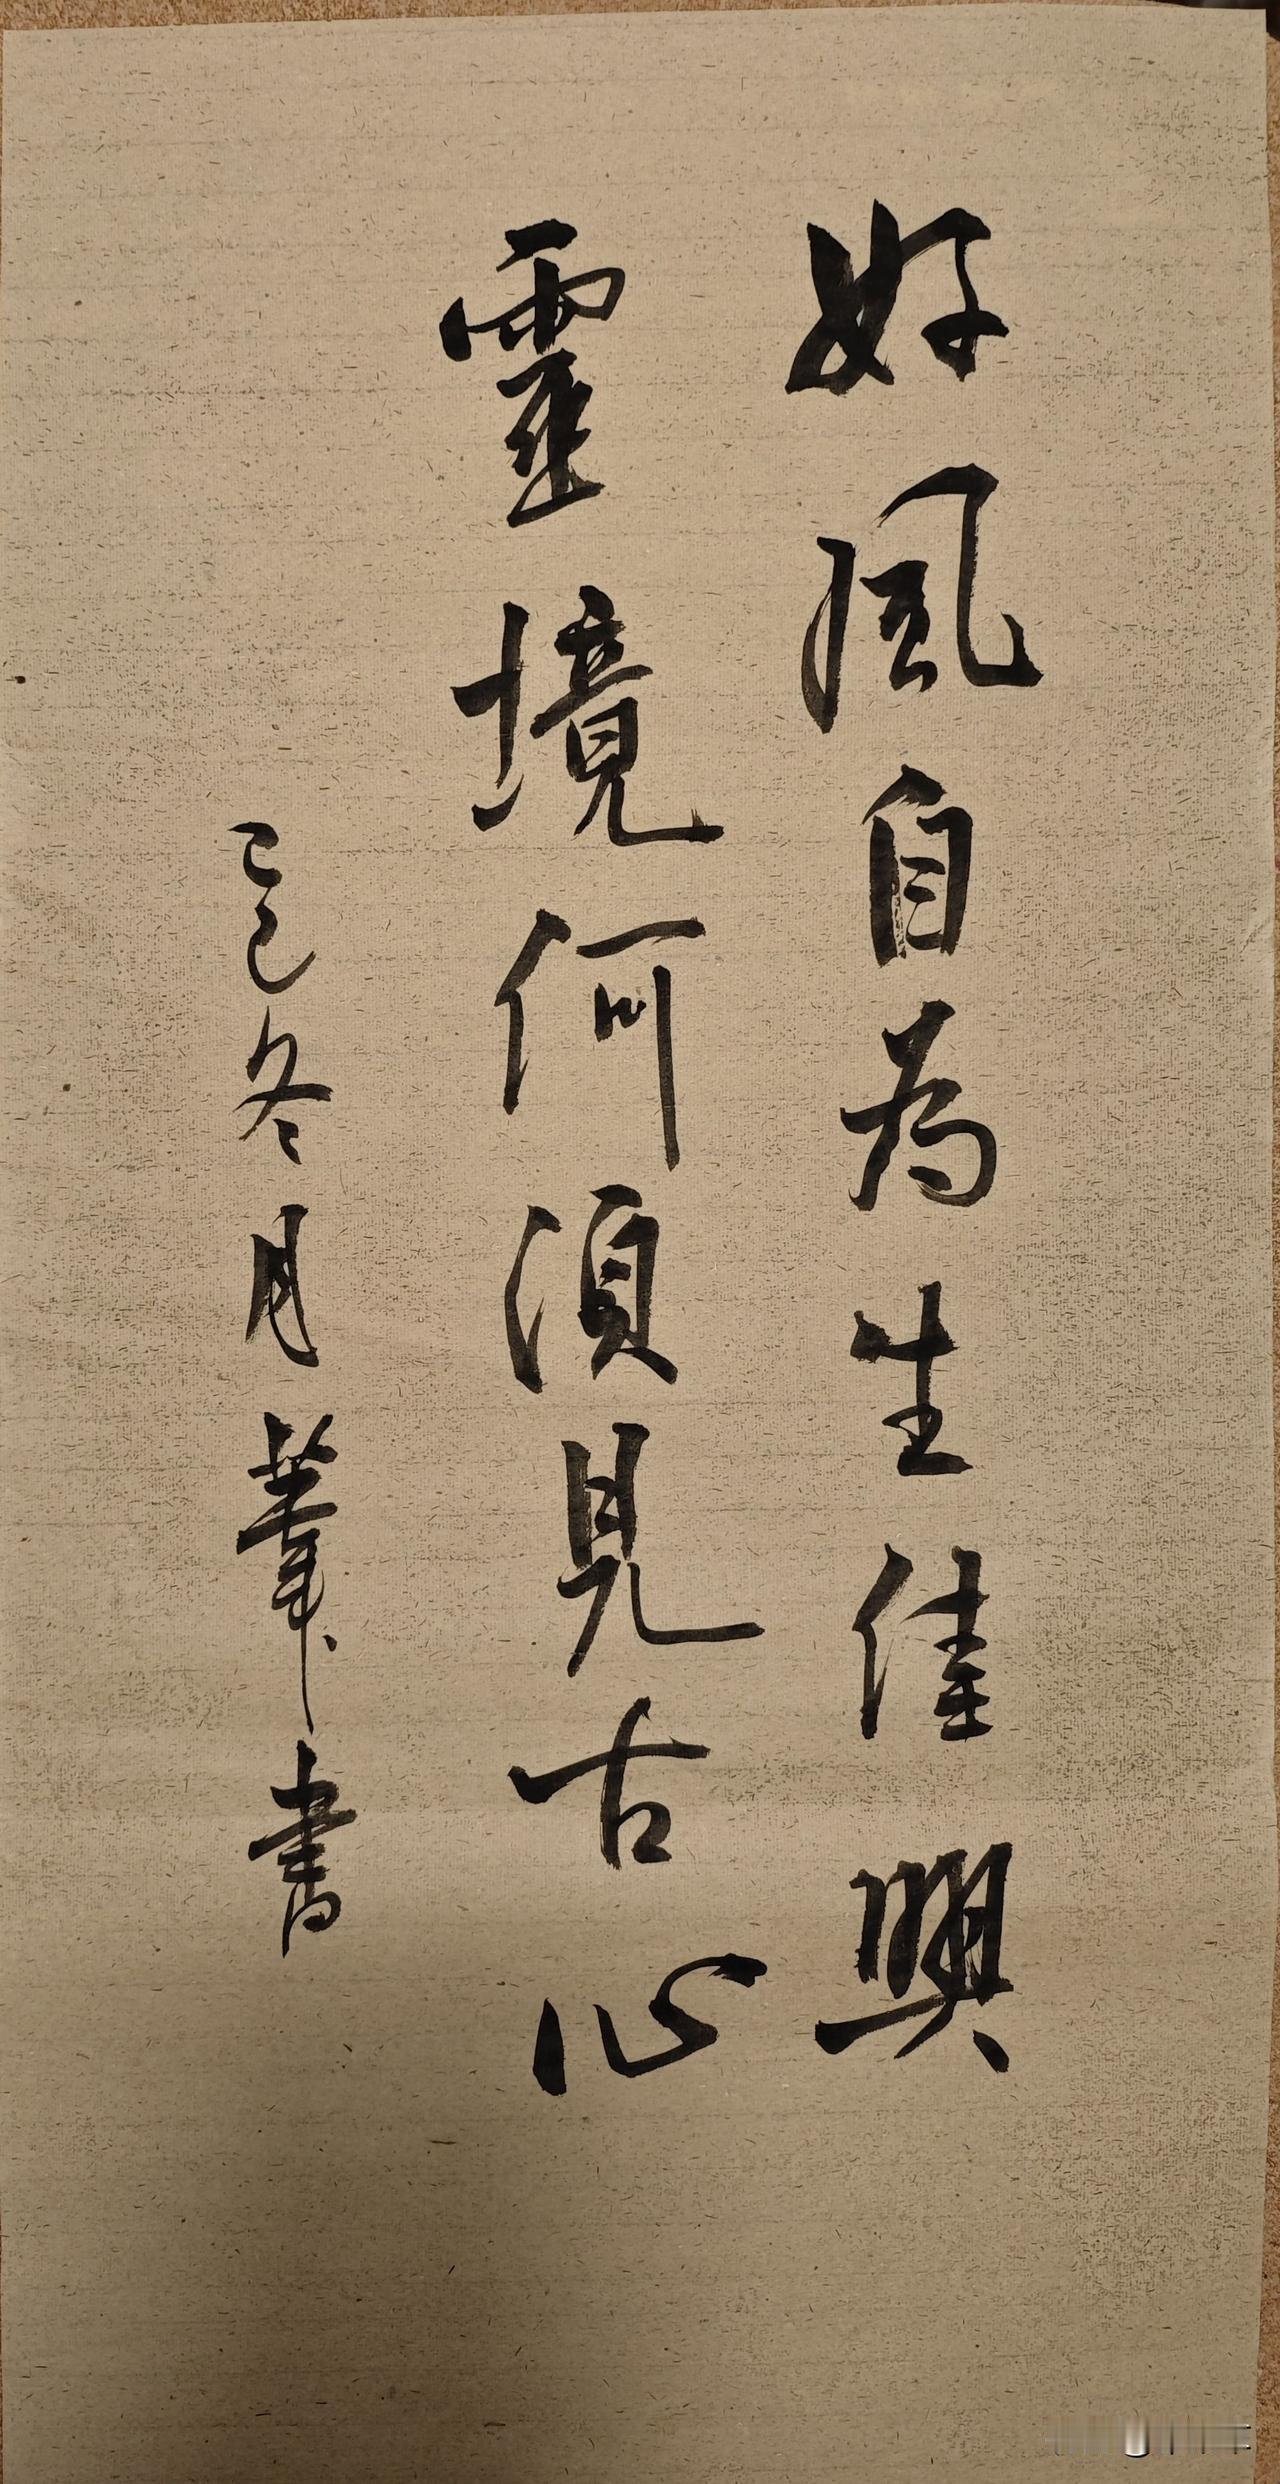 好風自為生佳興
靈境何須見古心
乙巳冬月華書